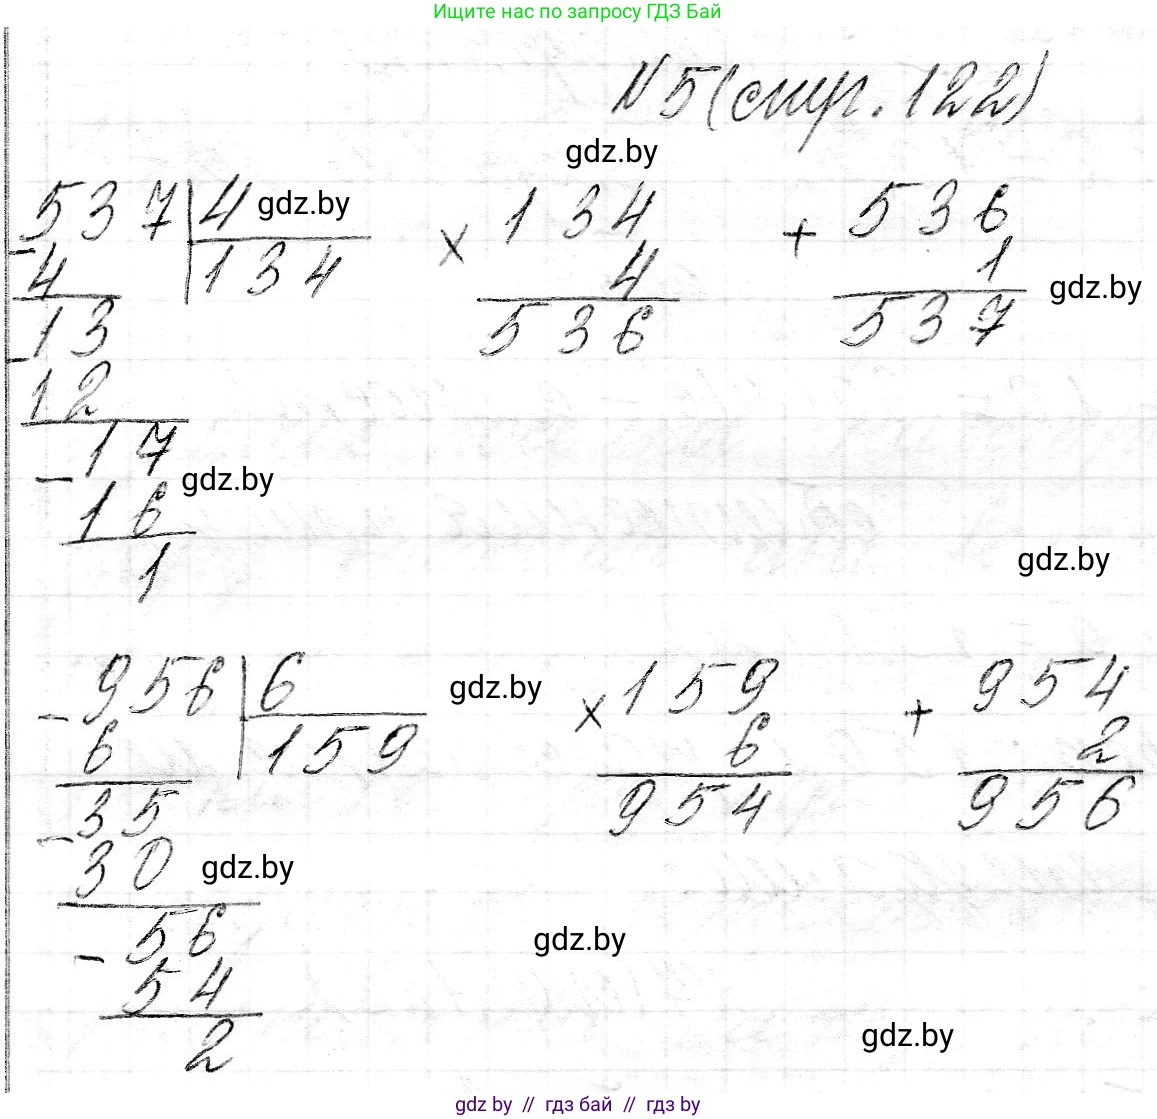 Ищите нас по запросу ГДЗ Бай
№5(стр. 122)
gdz.by
537 4 gdz.by × 134 + 536
-4 134 4 1 gdz.by
13 536 537
-12
17
-16 gdz.by
1
gdz.by
956 6 gdz.by × 159 + 954
-6 159 6 2
35 954 956
-30 gdz.by
56
-54 gdz.by
2 gdz.by
gdz by // гдз бай // гдз by